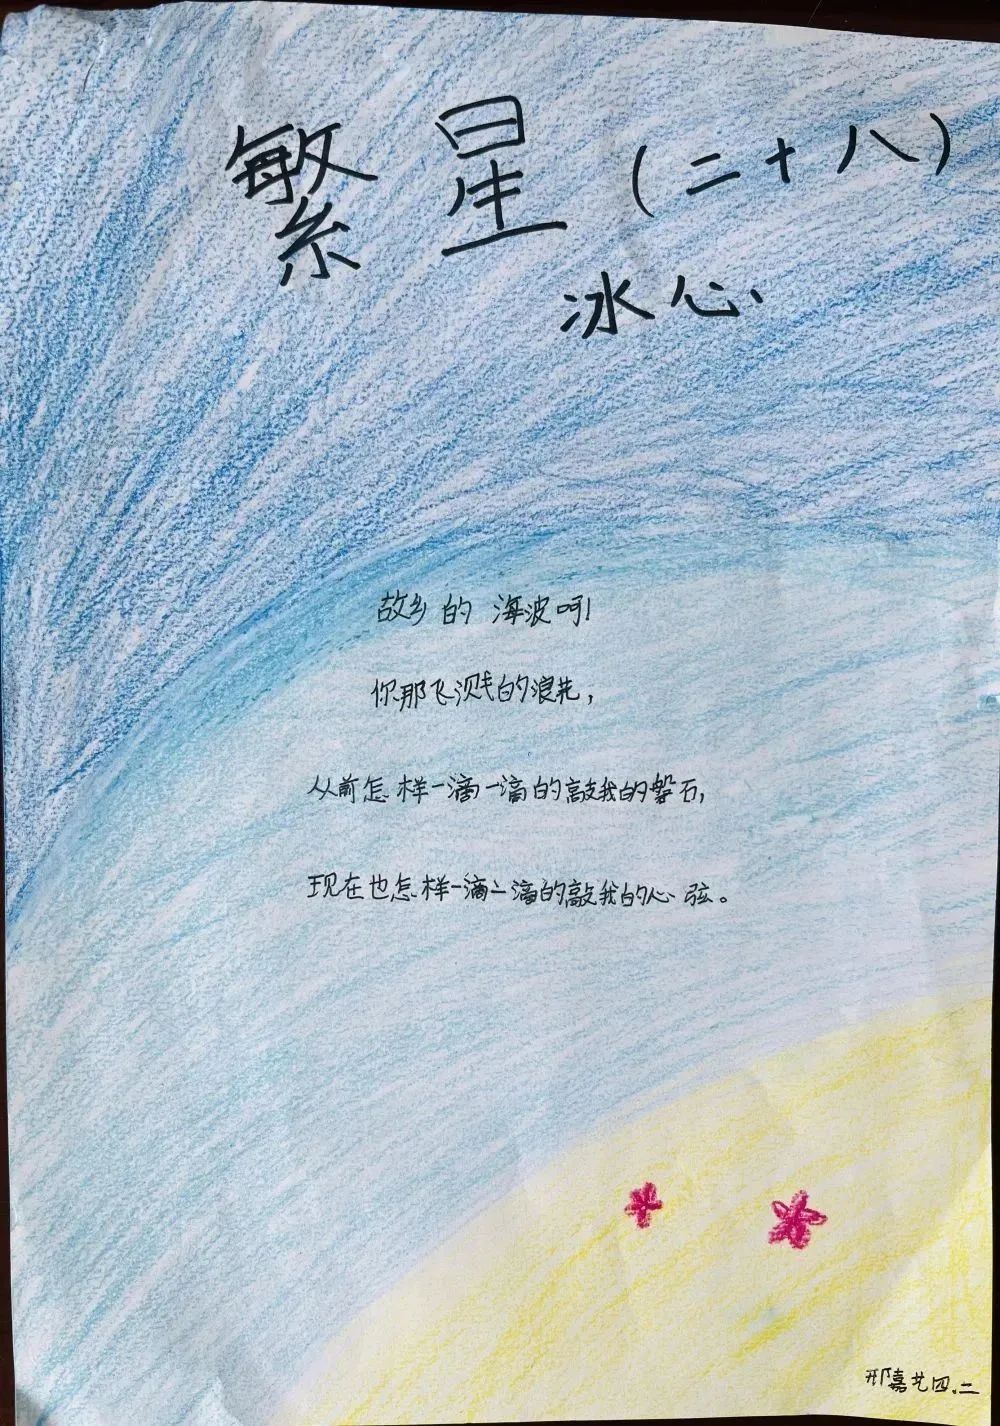 繁星（二十八）
冰心
故乡的海波呵!
你那飞溅的浪花，
从前怎样一滴一滴的敲我的磐石，
现在也怎样一滴一滴的敲我的心弦。
邢嘉艺四.二